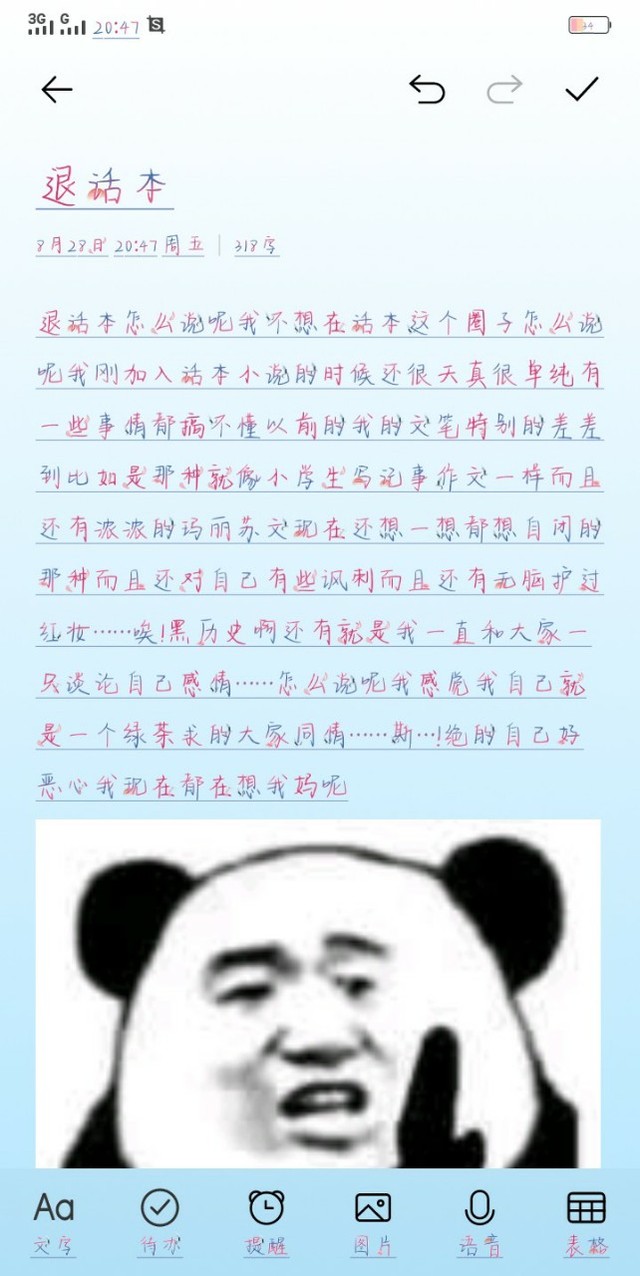 3G G 20:47
34
退话本
8月28日 20:47 周五 | 318字
退话本怎么说呢我不想在话本这个圈子怎么说
呢我刚加入话本小说的时候还很天真很单纯有
一些事情都搞不懂以前的我的文笔特别的差差
到比如是那种就像小学生写记事作文一样而且
还有浓浓的玛丽苏文现在还想一想都想自闭的
那种而且还对自己有些讽刺而且还有无脑护过
红妆……唉!黑历史啊还有就是我一直和大家一
只谈论自己感情……怎么说呢我感觉我自己就
是一个绿茶求的大家同情……斯…!绝的自己好
恶心我现在都在想我妈呢
Aa
文字 待办 提醒 图片 语音 表格